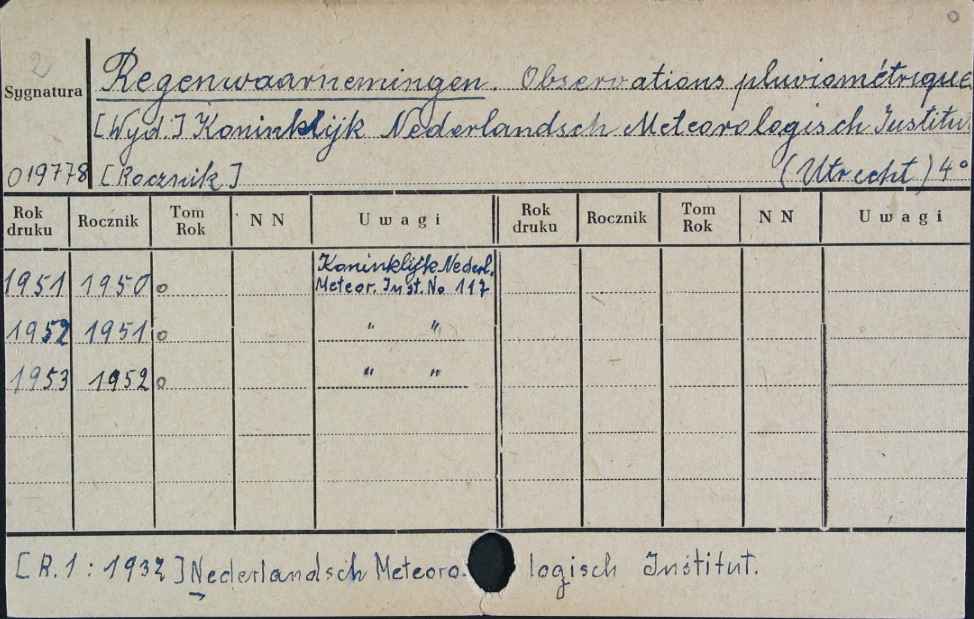 2
Sygnatura
019778
Regenwaarnemingen. Observations pluviométrique
[Wyd.] Koninklijk Nederlandsch Meteorologisch Institu
[Rocznik] (Utrecht) 4°
Rok druku Rocznik Tom Rok NN Uwagi Rok druku Rocznik Tom Rok NN Uwagi
1951 1950 o Koninklijk Nederl.
Meteor. Inst. No 117
1952 1951 o " "
1953 1952 o " "
[R.1 : 1932] Nederlandsch Meteoro- logisch Institut.